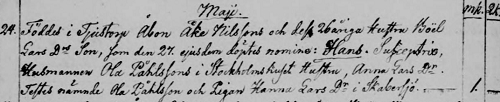 Maij. mk. qk.
24. Föddes i Tjustorp Åbon Åke Nilssons och dess 26 åriga Hustru Boel
Lars Dr Son, som den 27. ejusdem döptes nomine: Hans. Susceptrix,
Husmannen Ola Påhlssons i Stockholmshuset Hustru, Anna Lars Dr.
Testes nämnde Ola Påhlsson och Pigan Hanna Lars Dr i Skabersjö. 1.